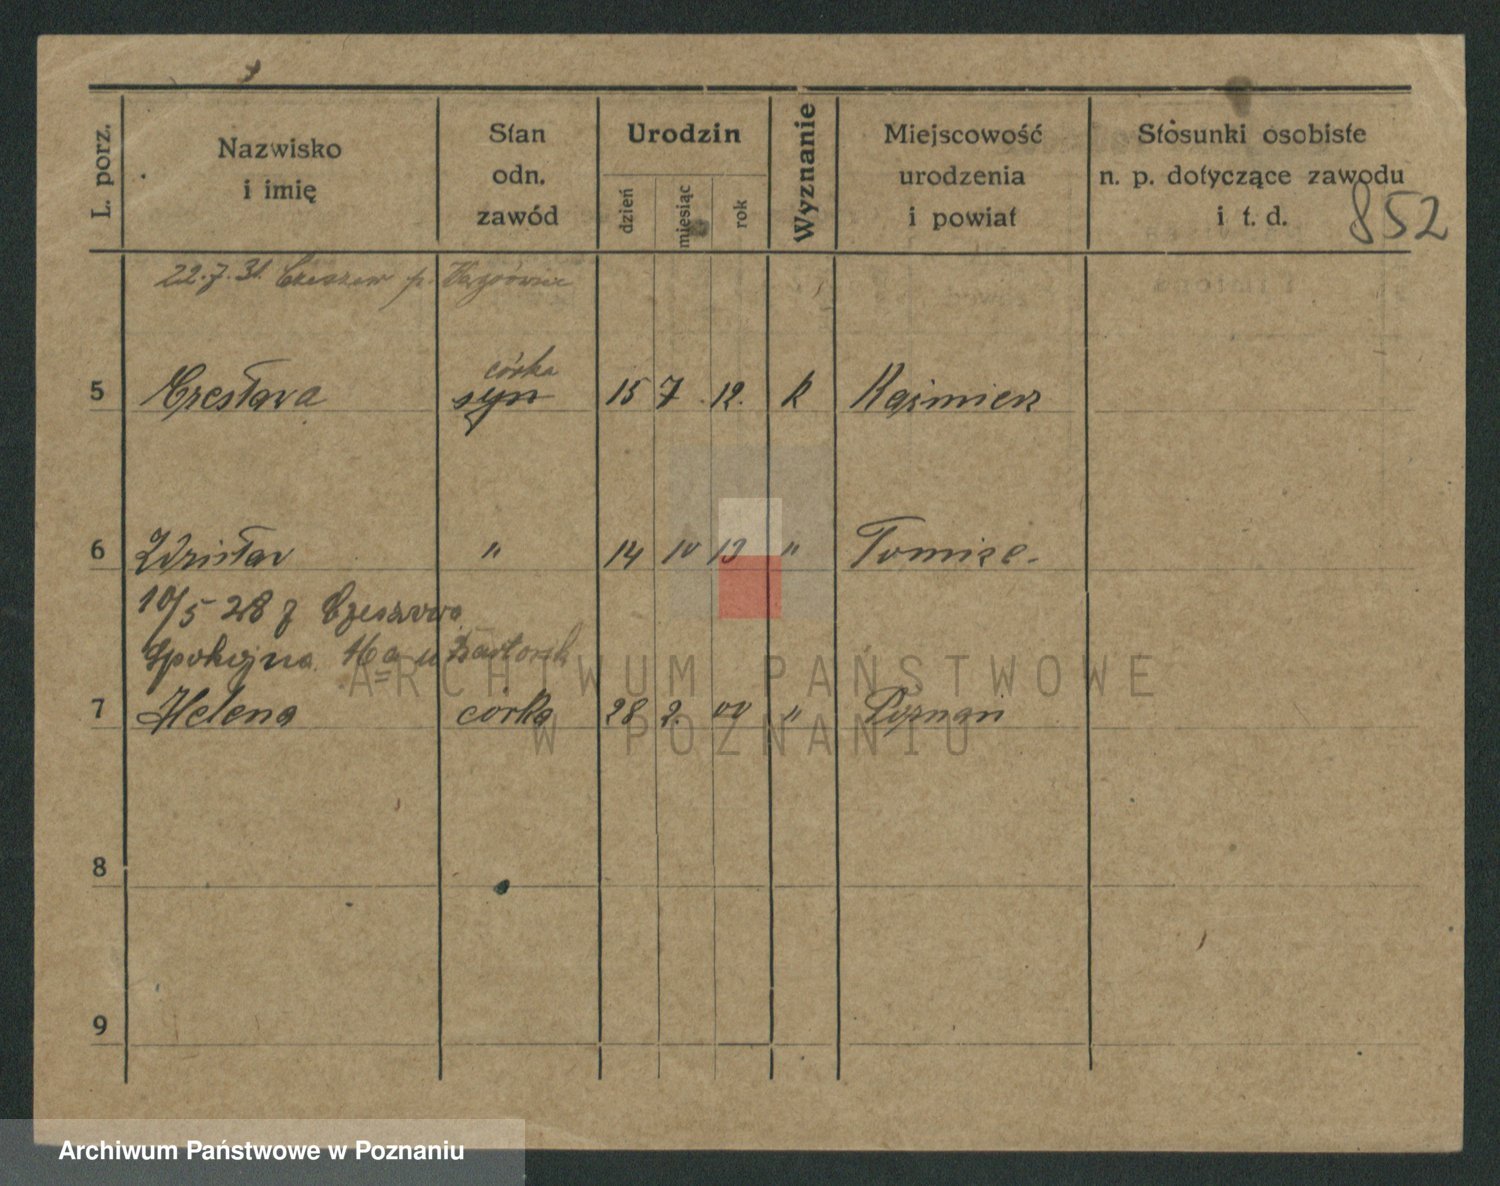 L. porz.
Nazwisko
i imię
Stan
odn.
zawód
Urodzin
dzień
miesiąc
rok
Wyznanie
Miejscowość
urodzenia
i powiat
Stosunki osobiste
n. p. dotyczące zawodu
i t. d.
852
22.7.31. Czeszewo p.
córka
5 Czesława syn 15 7 12. k Kaźmierz
6 Zdzisław " 14 10 "
10/5 28 z Czeszewa
Spokojna 16a u
7 Helena córka 28 2. 00 " Poznań
8
9
ARCHIWUM PAŃSTWOWE
W POZNANIU
Archiwum Państwowe w Poznaniu